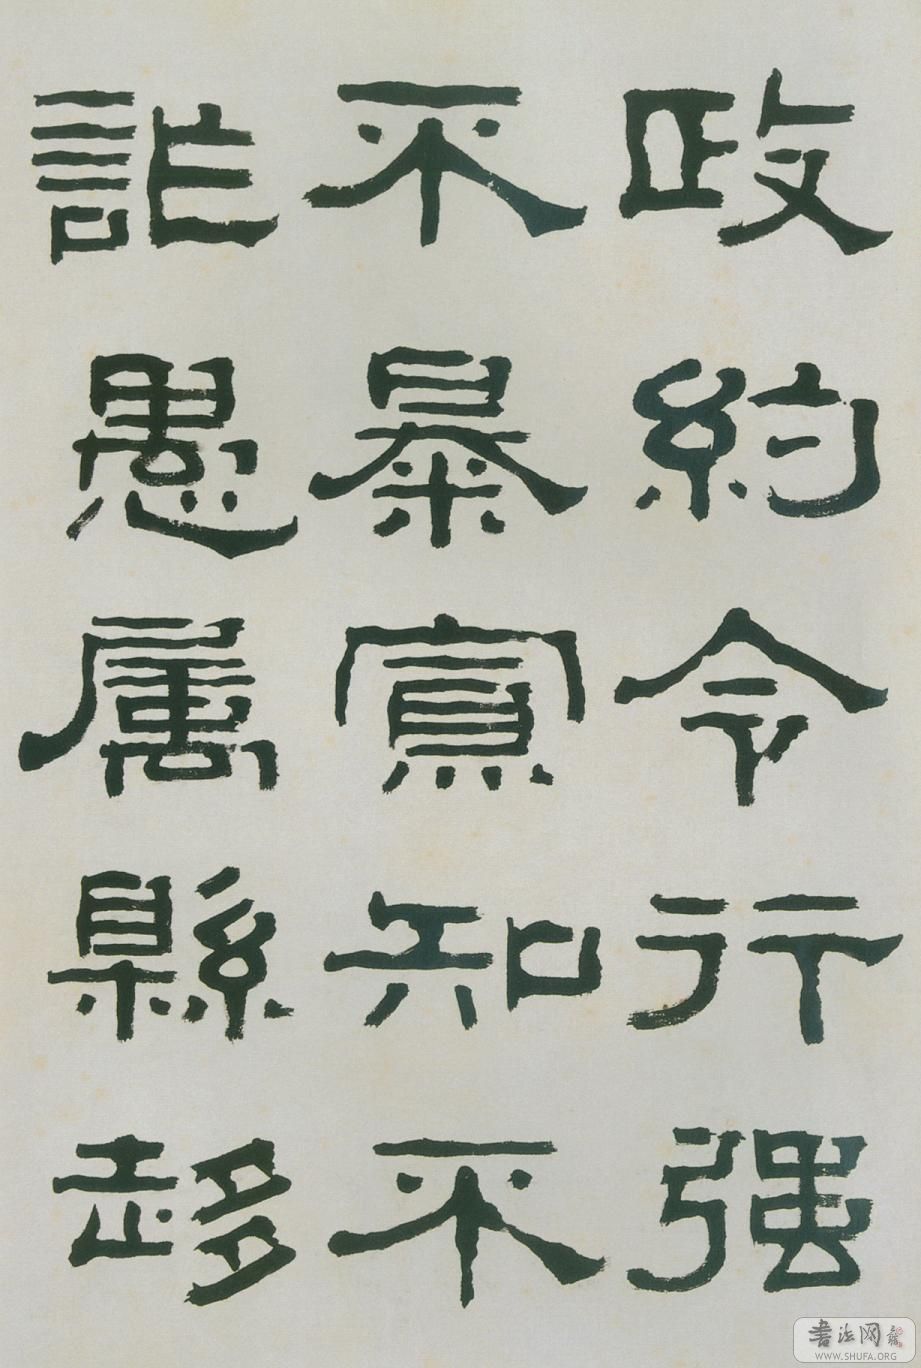 政約令行强
不暴寡知不
詐愚属縣趍
書法网
WWW.SHUFA.ORG